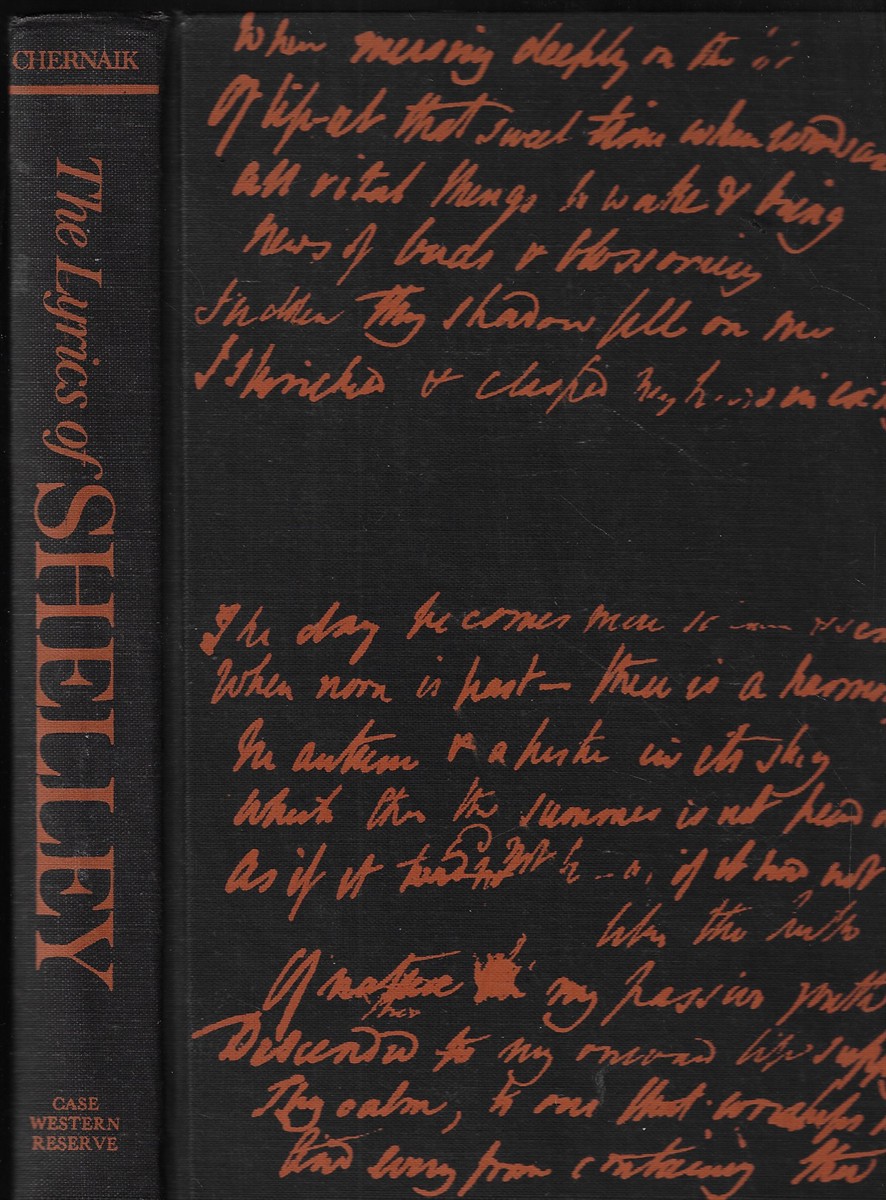 CHERNAIK
The Lyrics of SHELLEY
CASE
WESTERN
RESERVE
When musing deeply on the
Of life at that sweet time when winds are
all vital things to wake & bring
News of buds & blossoming
Sudden thy shadow fell on me
I shrieked & clasped my hands in
The day becomes more
When noon is past — there is a harmony
In autumn & a lustre in its sky
Which thro the summer is not heard
As if it not be if it had not
like the truth
Of nature my passive youth
Descended to my onward life
Thy calm, to one that worships
And every form containing thee